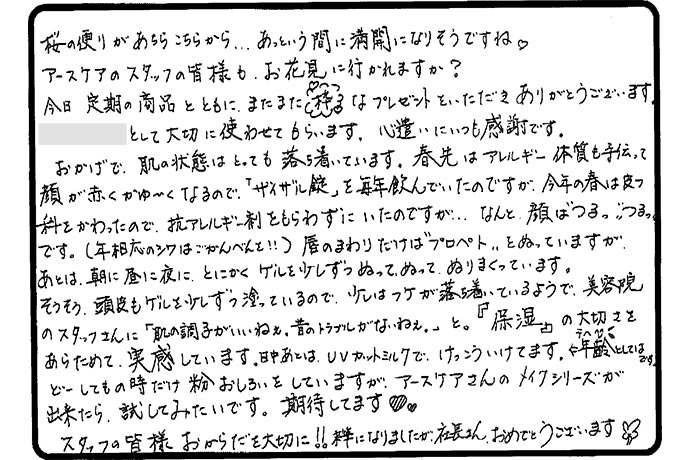 桜の便りがあちらこちらから…あっという間に満開になりそうですね♡
アースケアのスタッフの皆様も、お花見に行かれますか？
今日 定期の商品とともに、またまた粋なプレゼントをいただきありがとうございます。
として大切に使わせてもらいます。心遣いにいつも感謝です。
おかげで、肌の状態はとっても落ち着いています。春先はアレルギー体質も手伝って
顔が赤くかゆ〜くなるので、「ザイザル錠」を毎年飲んでいたのですが、今年の春は皮フ
科をかわったので、抗アレルギー剤をもらわずにいたのですが…なんと、顔はつるっつるっ
です。(年相応のシワはごかんべんを!!)唇のまわりだけは"プロペト"をぬっていますが、
あとは、朝に昼に夜に、とにかくゲルを少しずつぬって、ぬって、ぬりまくっています。
そうそう、頭皮もゲルを少しずつ塗っているので、少しはフケが落ち着いているようで、美容院
のスタッフさんに「肌の調子がいいねぇ。昔のトラブルがないねぇ。」と。『保湿』の大切さを
あらためて、実感しています。日中あとは、UVカットミルクで、けっこういけてます。←年齢としてはです。
どーしてもの時だけ粉おしろいをしていますが、アースケアさんのメイクシリーズが
出来たら、試してみたいです。期待してます♡♡
スタッフの皆様 おからだを大切に!!遅くなりましたが、社長さん、おめでとうございます